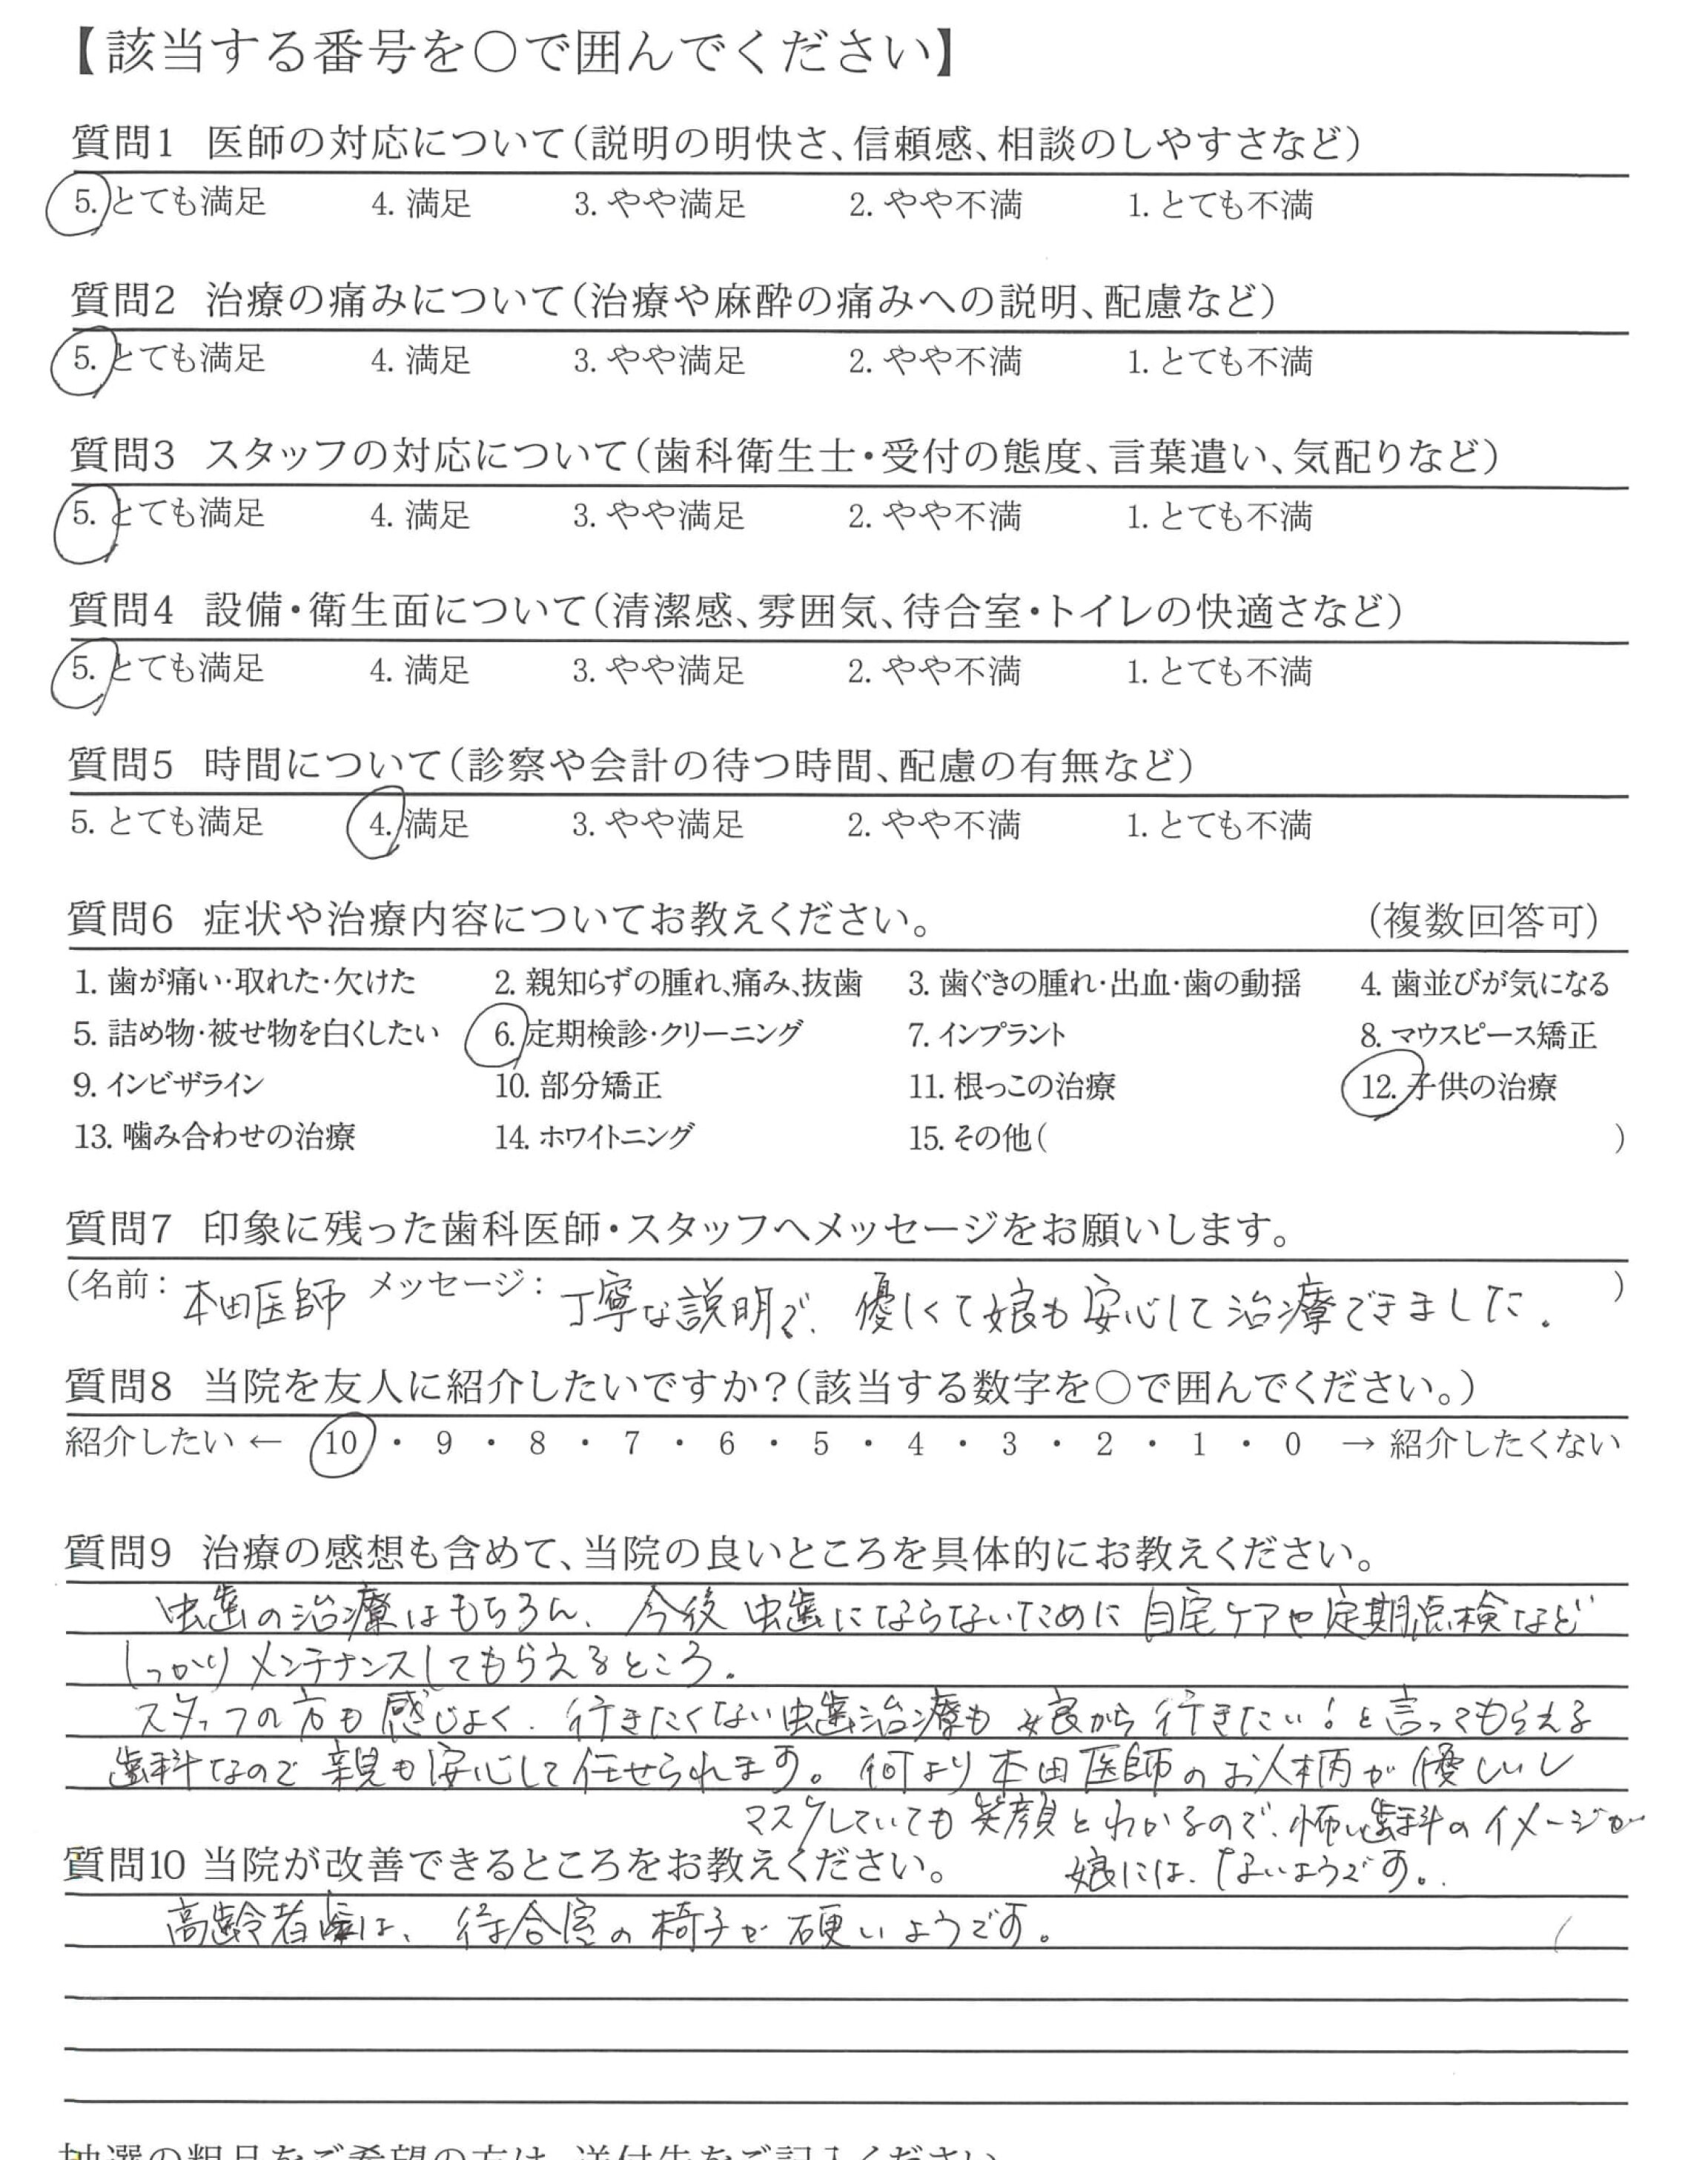 【該当する番号を○で囲んでください】
質問1 医師の対応について(説明の明快さ、信頼感、相談のしやすさなど)
5. とても満足 4. 満足 3. やや満足 2. やや不満 1. とても不満
質問2 治療の痛みについて(治療や麻酔の痛みへの説明、配慮など)
5. とても満足 4. 満足 3. やや満足 2. やや不満 1. とても不満
質問3 スタッフの対応について(歯科衛生士・受付の態度、言葉遣い、気配りなど)
5. とても満足 4. 満足 3. やや満足 2. やや不満 1. とても不満
質問4 設備・衛生面について(清潔感、雰囲気、待合室・トイレの快適さなど)
5. とても満足 4. 満足 3. やや満足 2. やや不満 1. とても不満
質問5 時間について(診察や会計の待つ時間、配慮の有無など)
5. とても満足 4. 満足 3. やや満足 2. やや不満 1. とても不満
質問6 症状や治療内容についてお教えください。 (複数回答可)
1. 歯が痛い・取れた・欠けた 2. 親知らずの腫れ、痛み、抜歯 3. 歯ぐきの腫れ・出血・歯の動揺 4. 歯並びが気になる
5. 詰め物・被せ物を白くしたい 6. 定期検診・クリーニング 7. インプラント 8. マウスピース矯正
9. インビザライン 10. 部分矯正 11. 根っこの治療 12. 子供の治療
13. 噛み合わせの治療 14. ホワイトニング 15. その他( )
質問7 印象に残った歯科医師・スタッフへメッセージをお願いします。
(名前: 本田医師 メッセージ: 丁寧な説明で、優しくて娘も安心して治療できました. )
質問8 当院を友人に紹介したいですか?(該当する数字を○で囲んでください。)
紹介したい ← 10 ・ 9 ・ 8 ・ 7 ・ 6 ・ 5 ・ 4 ・ 3 ・ 2 ・ 1 ・ 0 → 紹介したくない
質問9 治療の感想も含めて、当院の良いところを具体的にお教えください。
虫歯の治療はもちろん、今後虫歯にならないために自宅ケアや定期点検など
しっかりメンテナンスしてもらえるところ.
スタッフの方も感じよく、行きたくない虫歯治療も娘から行きたい!と言ってもらえる
歯科なので親も安心して任せられます。何より本田医師のお人柄が優しいし
マスクしていても笑顔とわかるので、怖い歯科のイメージが
娘には、ないようです。
質問10 当院が改善できるところをお教えください。
高齢者は、待合室の椅子が硬いようです。
抽選の粗品をご希望の方は、送付先をご記入ください